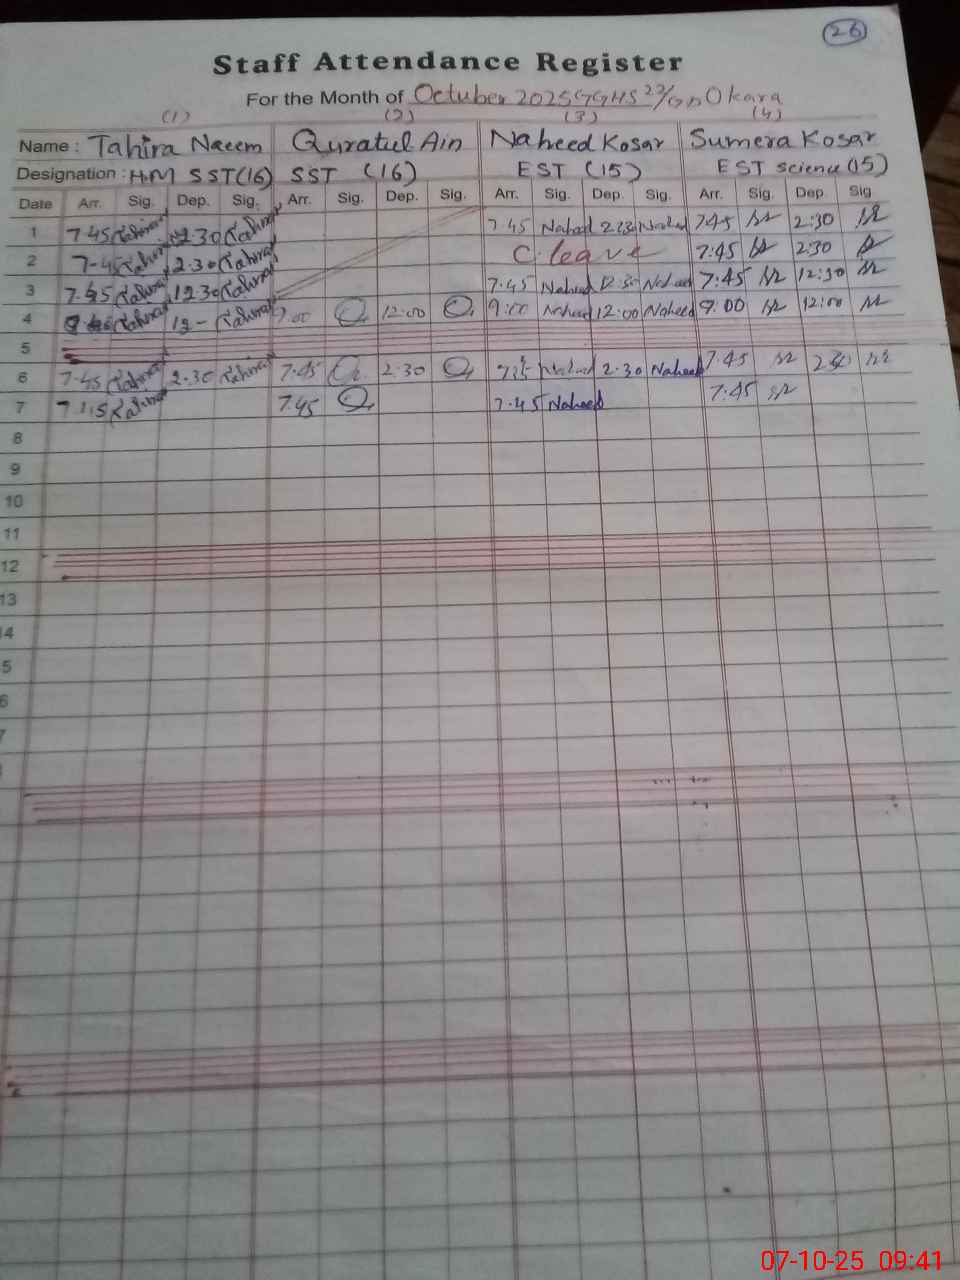 26
Staff Attendance Register
For the Month of Octuber 2025 GGHS 23/GD Okara
(1) (2) (3) (4)
Name : Tahira Naeem Quratul Ain Naheed Kosar Sumera Kosar
Designation : HM SST(16) SST (16) EST (15) EST science(15)
Date Arr. Sig. Dep. Sig. Arr. Sig. Dep. Sig. Arr. Sig. Dep. Sig. Arr. Sig. Dep. Sig.
1 7.45 Tahira 2.30 Tahira 7.45 Naheed Naheed 7:45 2:30
2 7.45 Tahira 2.30 Tahira C. leave 7:45 2:30
3 7.45 Tahira 12.30 Tahira 7.45 Naheed 12.30 Naheed 7:45 12:30
4 Tahira 12 - Tahira 9.00 12:00 9:00 Naheed 12:00 Naheed 9:00 12:00
5
6 7.45 Tahira 2.30 Tahira 7.45 2.30 Naheed 2.30 Naheed 7.45
7 Tahira 7.45 7.45 Naheed 7:45
8
9
10
11
12
13
4
5
6
7
07-10-25 09:41